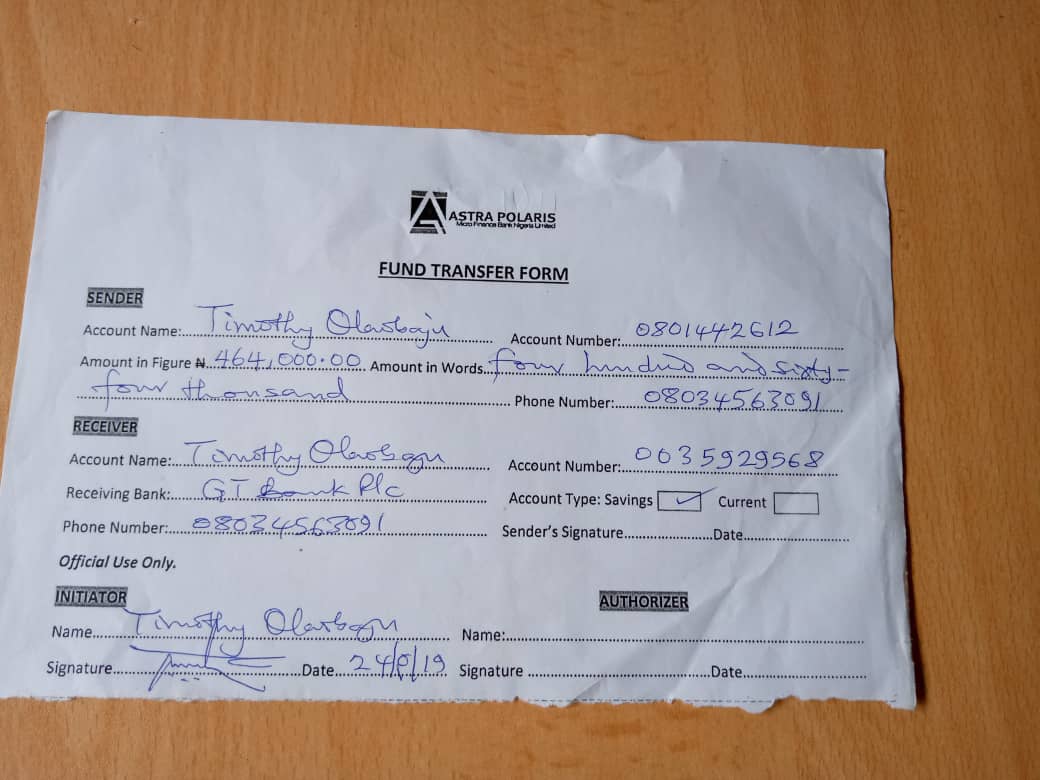 ASTRA POLARIS
Micro Finance Bank Nigeria Limited
FUND TRANSFER FORM
SENDER
Account Name: Timothy Olaobaju Account Number: 0801442612
Amount in Figure ₦ 464,000.00 Amount in Words four hundred and sixty-
four thousand Phone Number: 08034563091
RECEIVER
Account Name: Timothy Olaobaju Account Number: 0035929568
Receiving Bank: GT Bank Plc Account Type: Savings ✓ Current
Phone Number: 08034563091 Sender's Signature Date
Official Use Only.
INITIATOR AUTHORIZER
Name Timothy Olaobaju Name:
Signature Date 24/8/19 Signature Date